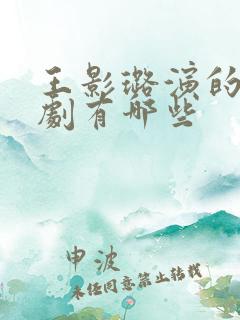 王影璐演的
劇有哪些
申波
未经同意禁止转载